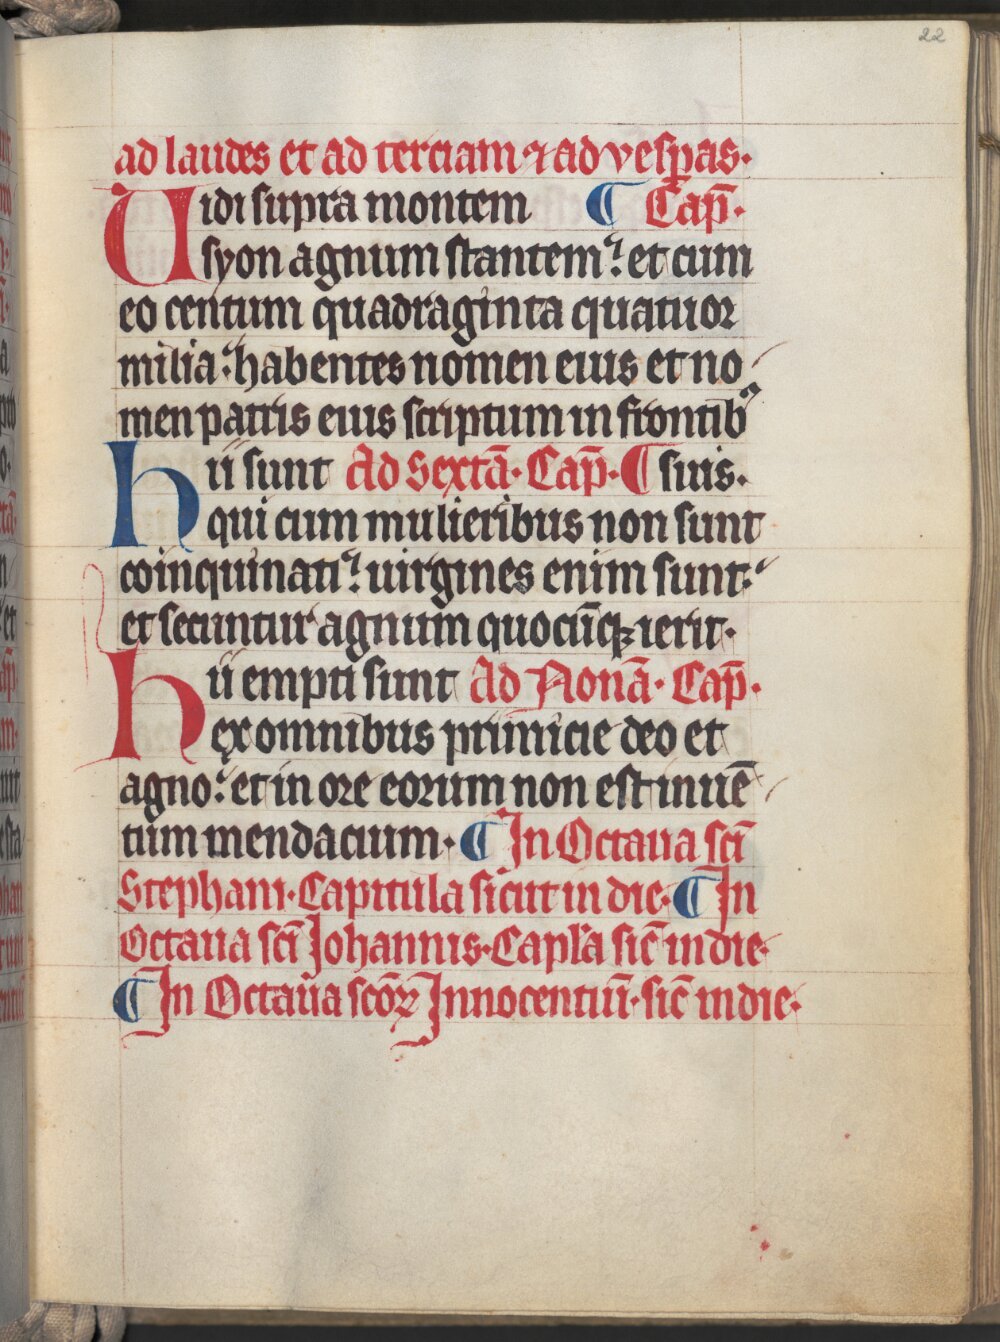 22
ad laudes et ad terciam ⁊ ad vesꝑas.
Uidi supra montem ¶ Cap̄.
syon agnum stantem: et cum
eo centum quadraginta quatuor
milia: habentes nomen eius et no
men patris eius scriptum in frontibꝰ
hii sunt Ad Sextā. Cap̄. ¶ suis.
qui cum mulieribus non sunt
coinquinati: uirgines enim sunt:
et secuntur agnum quocūqꝫ ierit.
hii empti sunt Ad Nonā. Cap̄.
ex omnibus primicie deo et
agno: et in ore eorum non est inuē
tum mendacium. ¶ In Octaua sc̄i
Stephani. Capitula sicut in die. ¶ In
Octaua sc̄i Johannis. Capl̄a sic̄ in die.
¶ In Octaua sc̄oꝝ Innocentiū. sic̄ in die.